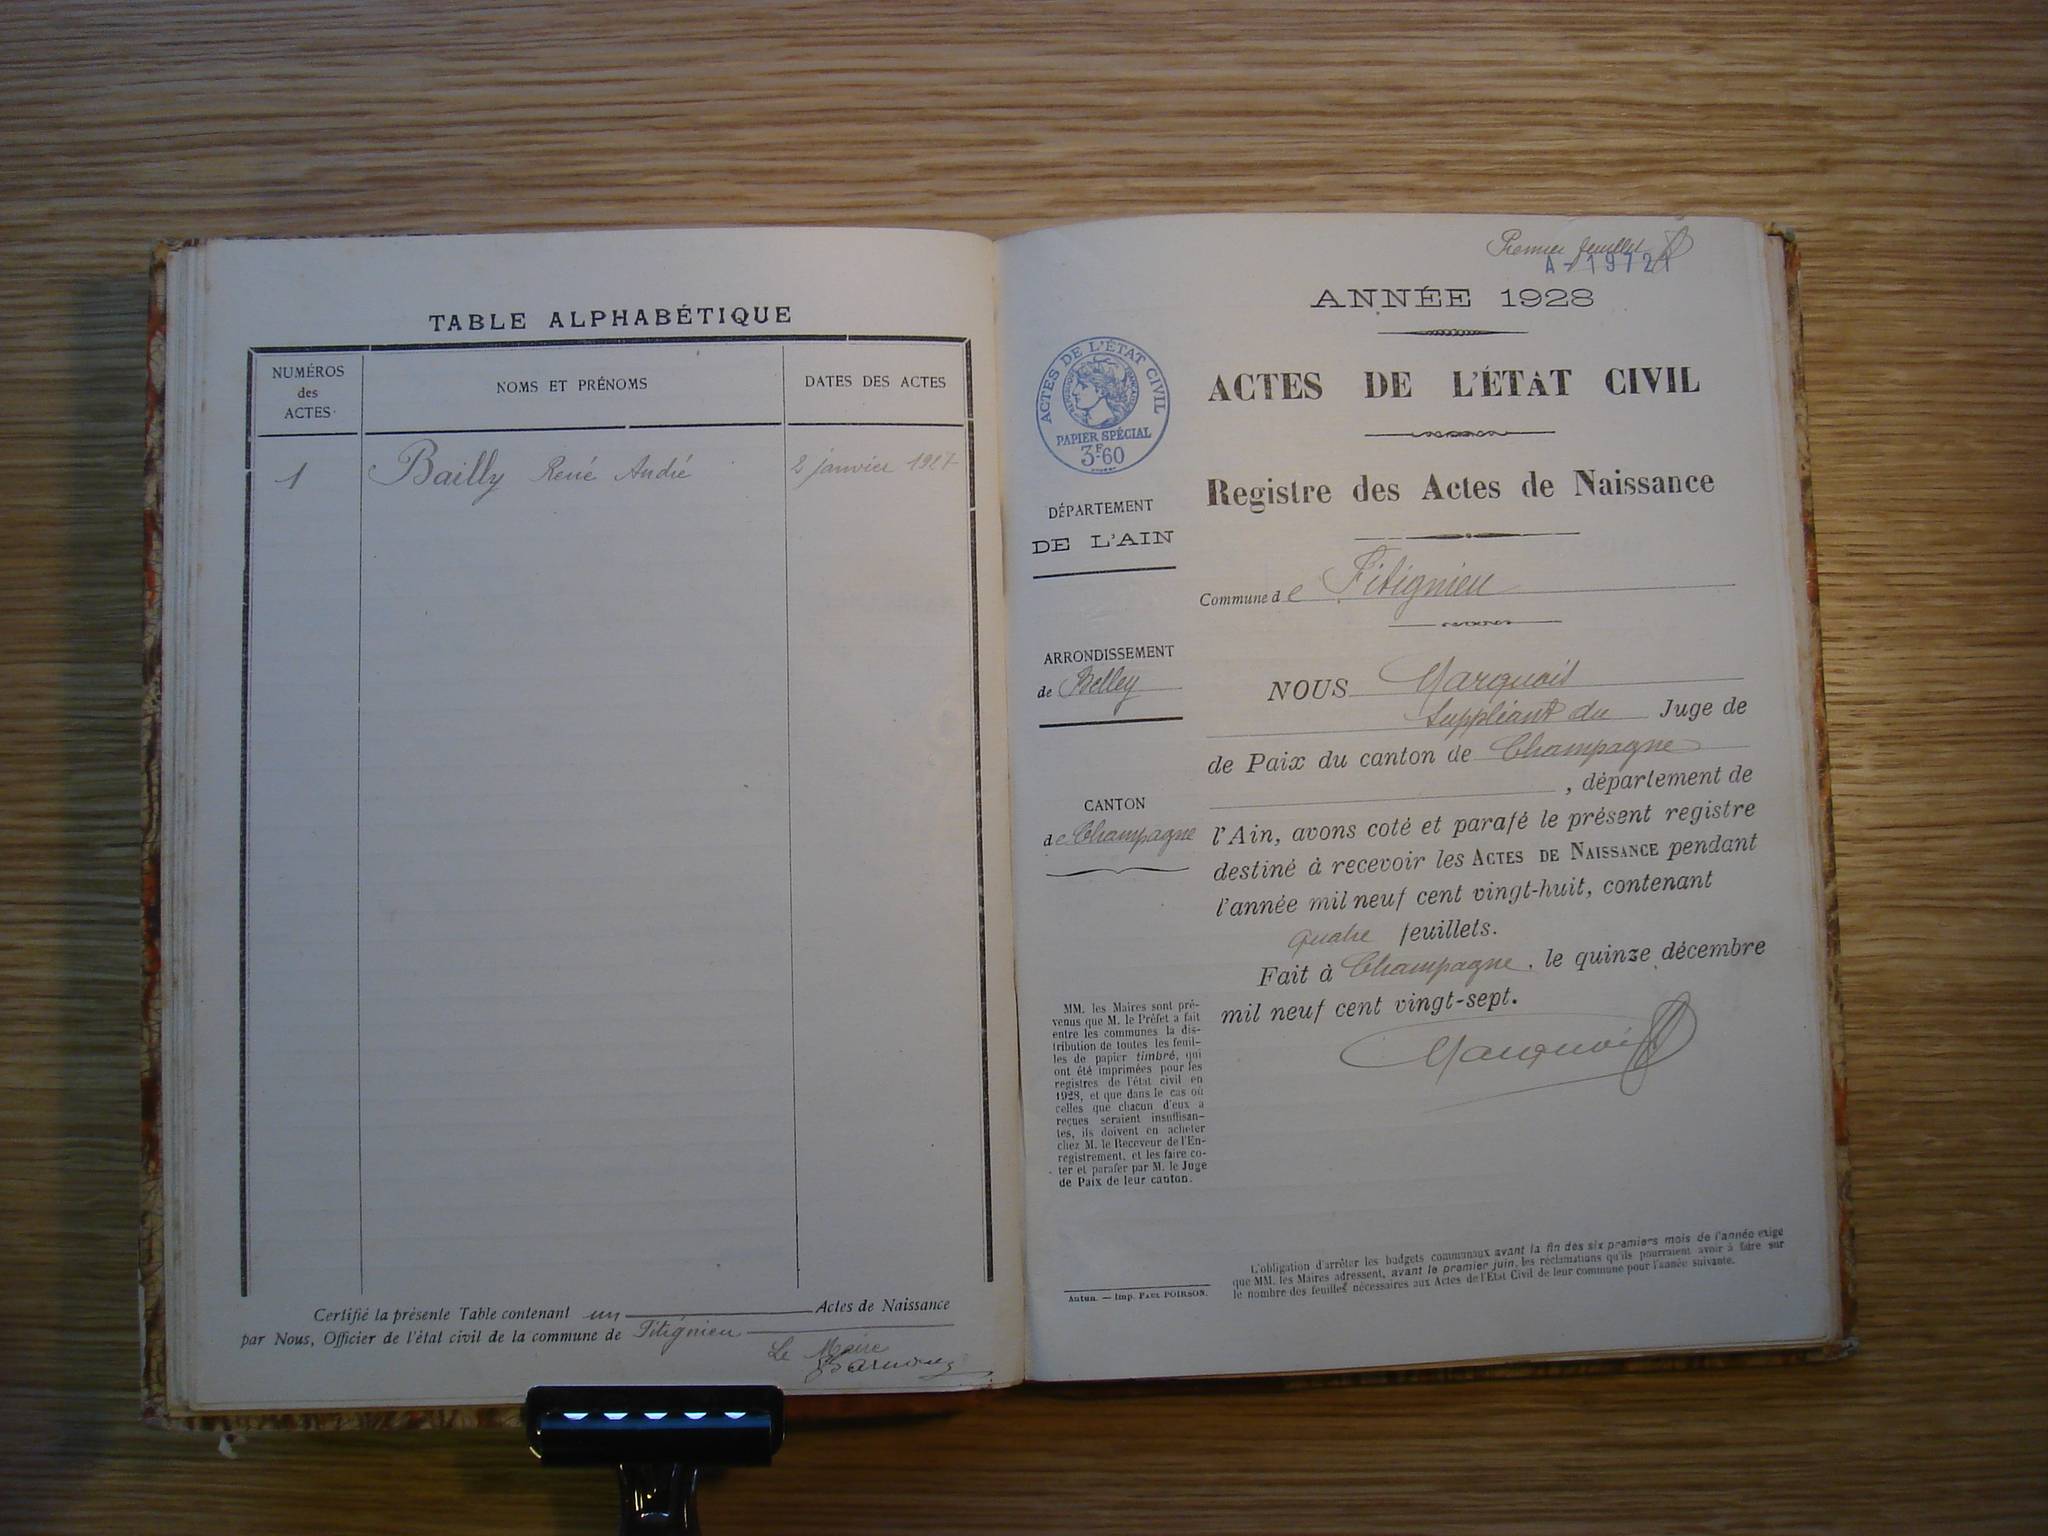 TABLE ALPHABÉTIQUE
NUMÉROS
des
ACTES
NOMS ET PRÉNOMS
DATES DES ACTES
1
Bailly René André
2 janvier 1927
Certifié la présente Table contenant un Actes de Naissance
par Nous, Officier de l'état civil de la commune de Fitignieu
Le Maire
Premier feuillet
A-19721
ANNÉE 1928
ACTES DE L'ÉTAT CIVIL
RÉPUBLIQUE FRANÇAISE
PAPIER SPÉCIAL
3F60
ACTES DE L'ÉTAT CIVIL
Registre des Actes de Naissance
DÉPARTEMENT
DE L'AIN
Commune de Fitignieu
ARRONDISSEMENT
de Belley
CANTON
de Champagne
NOUS Marquois
Suppléant du Juge de
de Paix du canton de Champagne
, département de
l'Ain, avons coté et parafé le présent registre
destiné à recevoir les ACTES DE NAISSANCE pendant
l'année mil neuf cent vingt-huit, contenant
quatre feuillets.
Fait à Champagne, le quinze décembre
mil neuf cent vingt-sept.
Marquois
MM. les Maires sont pré-
venus que M. le Préfet a fait
entre les communes la dis-
tribution de toutes les feuil-
les de papier timbré, qui
ont été imprimées pour les
registres de l'état civil en
1928, et que dans le cas où
celles que chacun d'eux a
reçues seraient insuffisan-
tes, ils doivent en acheter
chez M. le Receveur de l'En-
registrement, et les faire co-
ter et parafer par M. le Juge
de Paix de leur canton.
Autun. — Imp. PAUL POIRSON.
L'obligation d'arrêter les budgets communaux avant la fin des six premiers mois de l'année exige
que MM. les Maires adressent, avant le premier juin, les réclamations qu'ils pourraient avoir à faire sur
le nombre des feuilles nécessaires aux Actes de l'État Civil de leur commune pour l'année suivante.